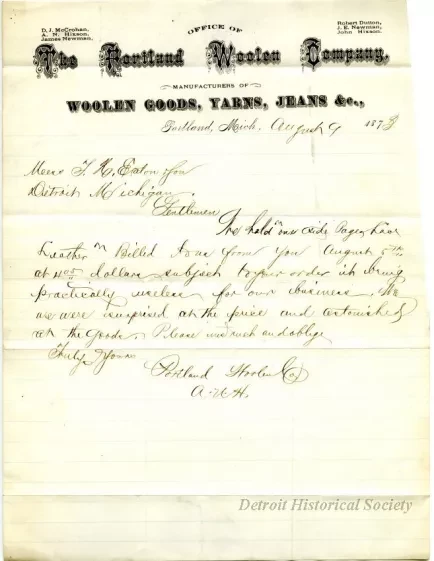 OFFICE OF
D. J. McCrohan,
A. N. Hixson,
James Newman,
Robert Dutton,
J. E. Newman,
John Hixson.
The Portland Woolen Company,
MANUFACTURERS OF
WOOLEN GOODS, YARNS, JEANS &c.,
Portland, Mich. August 9 1873
Mess T. H. Eaton & Son
Detroit Michigan
Gentlemen
We hold one side Page
Leather Billed to us from you August 5th
at dollars subject to your order it being
practically useless for our business. We
were surprised at the price and astonished
at the Goods. Please instruct and oblige
Truly Yours
Portland Woolen Co
A. N. H.
Detroit Historical Society